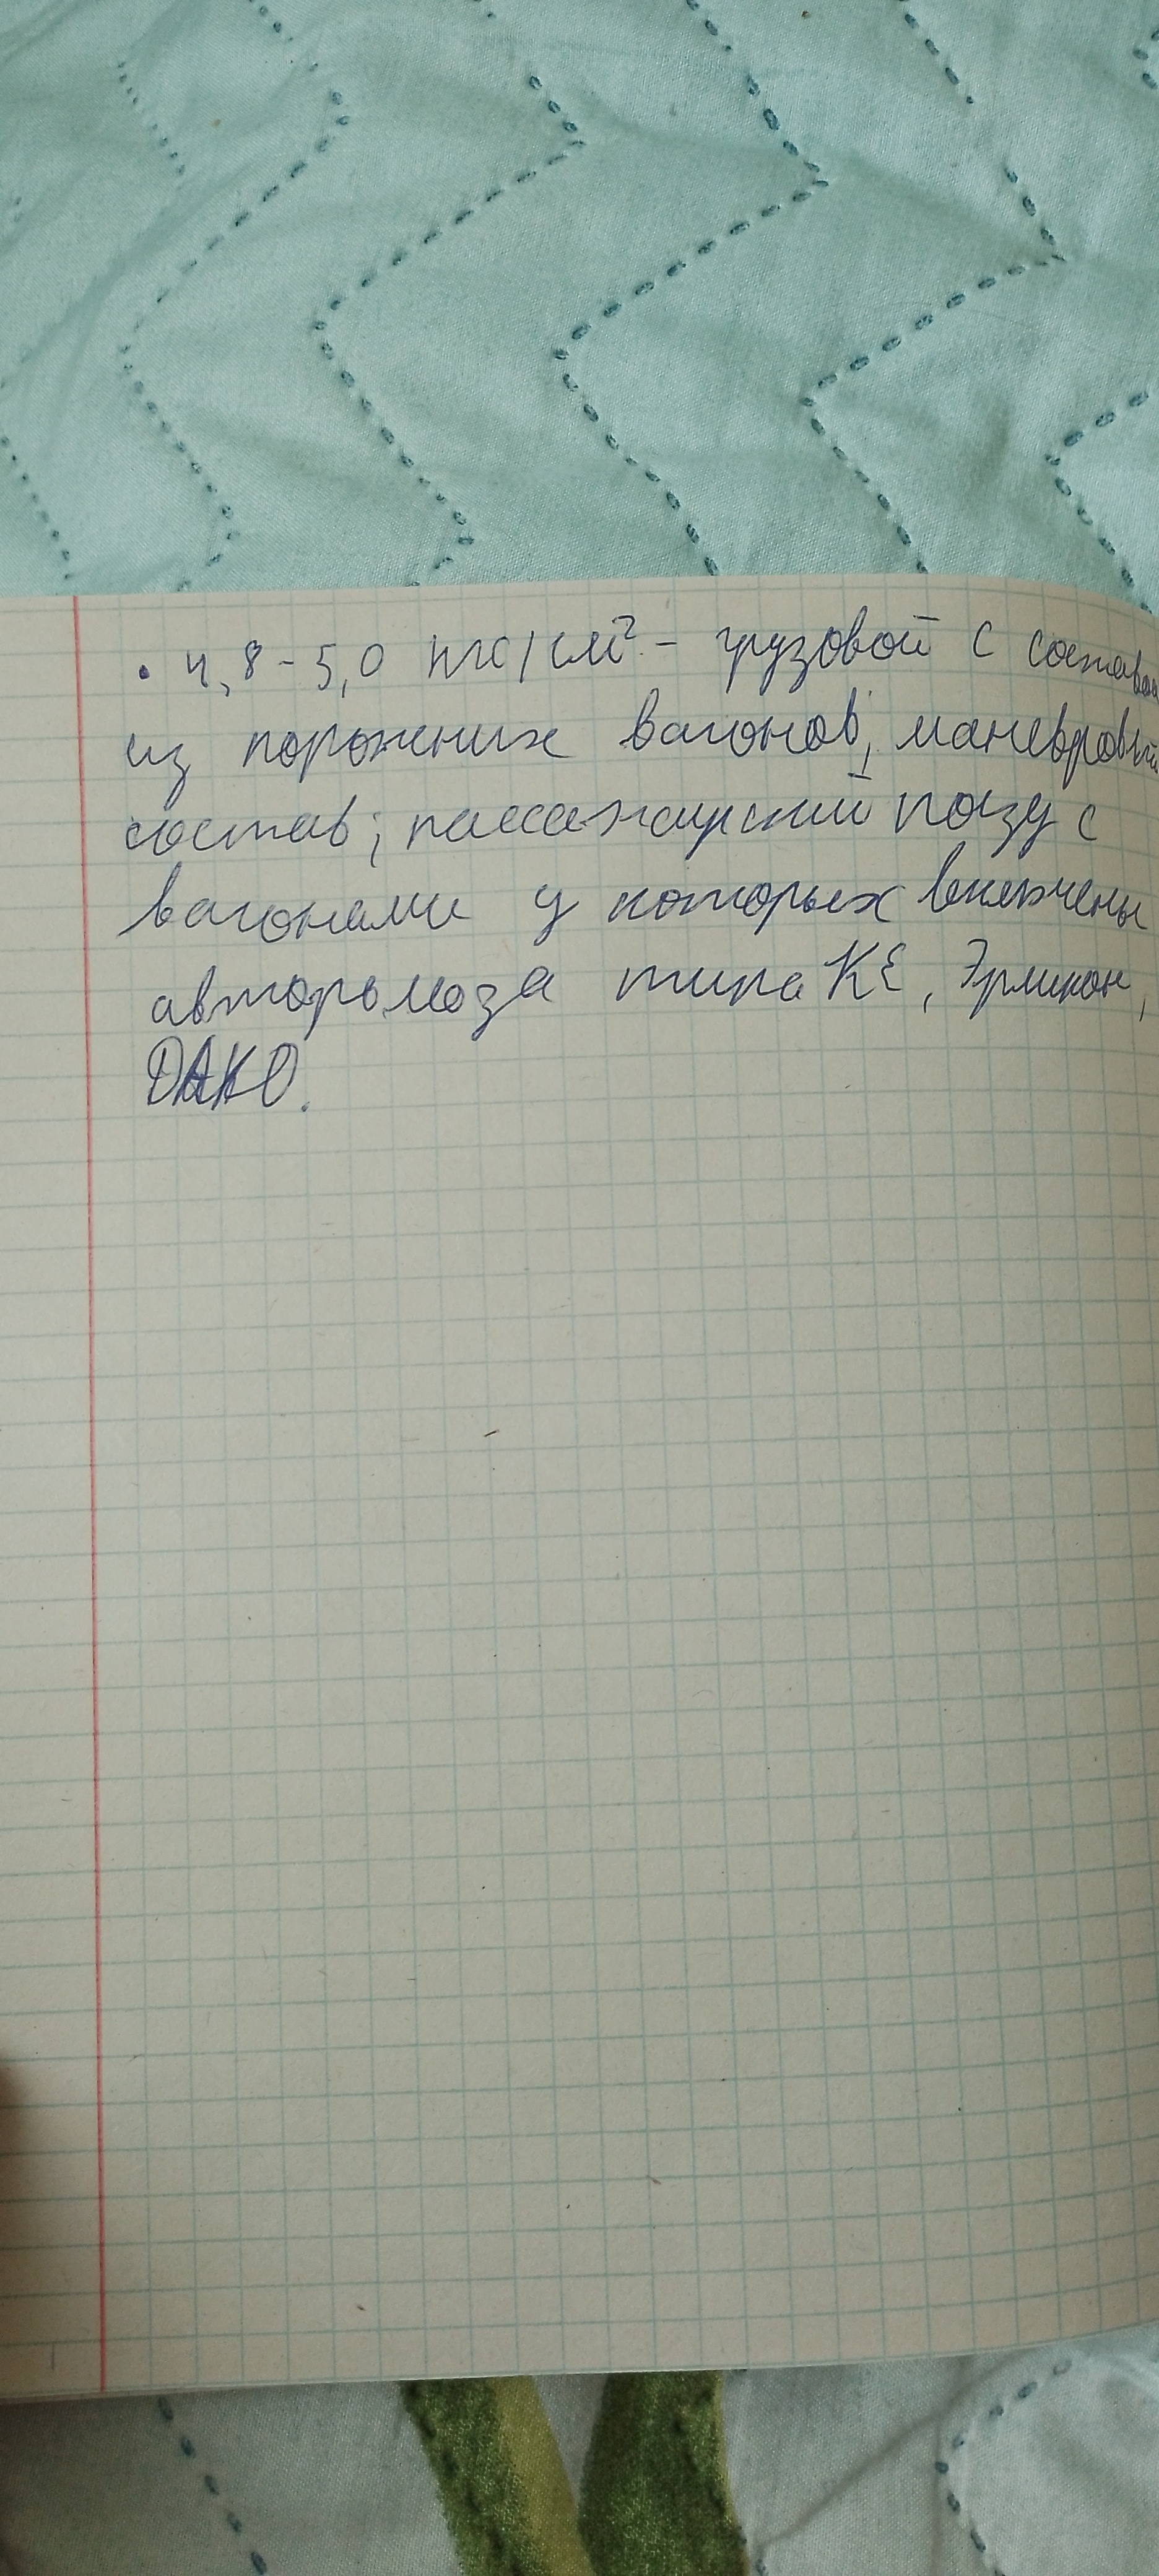 • 4,8-5,0 кгс/см² - грузовой с составом
из порожених вагонов; маневровый
состав; пассажирский поезд с
вагонами у которых включены
автормоза типа КЕ, Эрликон,
ДАКО.